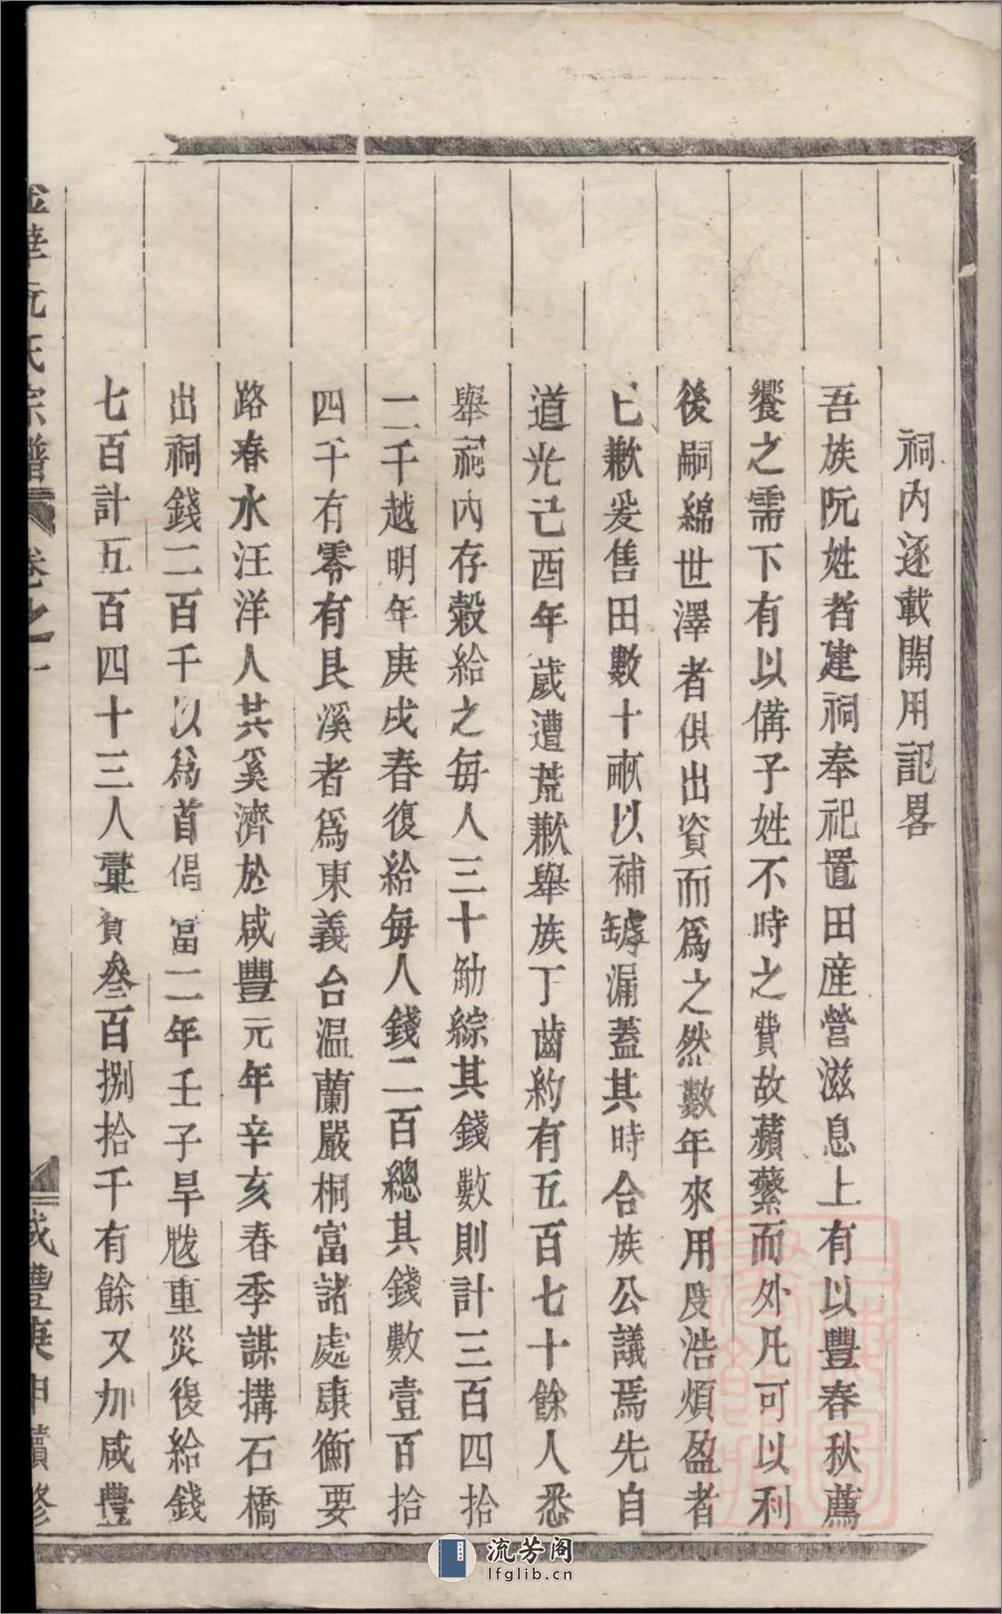 祠內逐載開用記畧
吾族阮姓者建祠奉祀置田産營滋息上有以豐春秋薦
饗之需下有以備子姓不時之費故蘋蘩而外凡可以利
後嗣綿世澤者俱出資而爲之然數年來用度浩煩盈者
已歉爰售田數十畝以補罅漏蓋其時合族公議焉先自
道光己酉年歲遭荒歉舉族丁齒約有五百七十餘人悉
舉祠內存穀給之每人三十觔綜其錢數則計三百四拾
二千越明年庚戌春復給每人錢二百總其錢數壹百拾
四千有零有艮溪者爲東義台温蘭嚴桐富諸處康衢要
路春水汪洋人其奚濟於咸豐元年辛亥春季謀搆石橋
出祠錢二百千以爲首倡當二年壬子旱魃重災復給錢
七百計五百四十三人彙算叄百捌拾千有餘又加咸豐
金華阮氏宗譜 卷之一 咸豐庚申續修
流芳阁
lfglib.cn